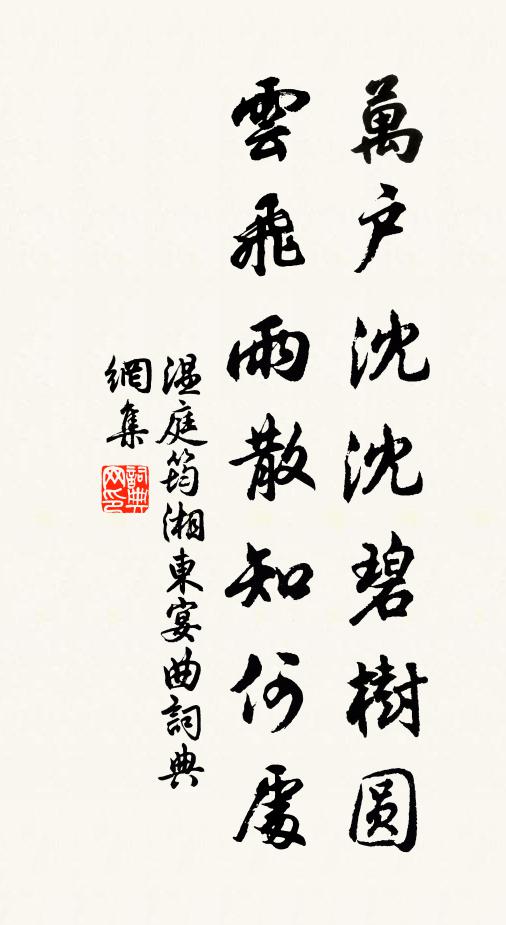 萬戶沈沈碧樹圆
雲飛雨散知何處
温庭筠湘東宴曲詞典
網集
詞典
网印